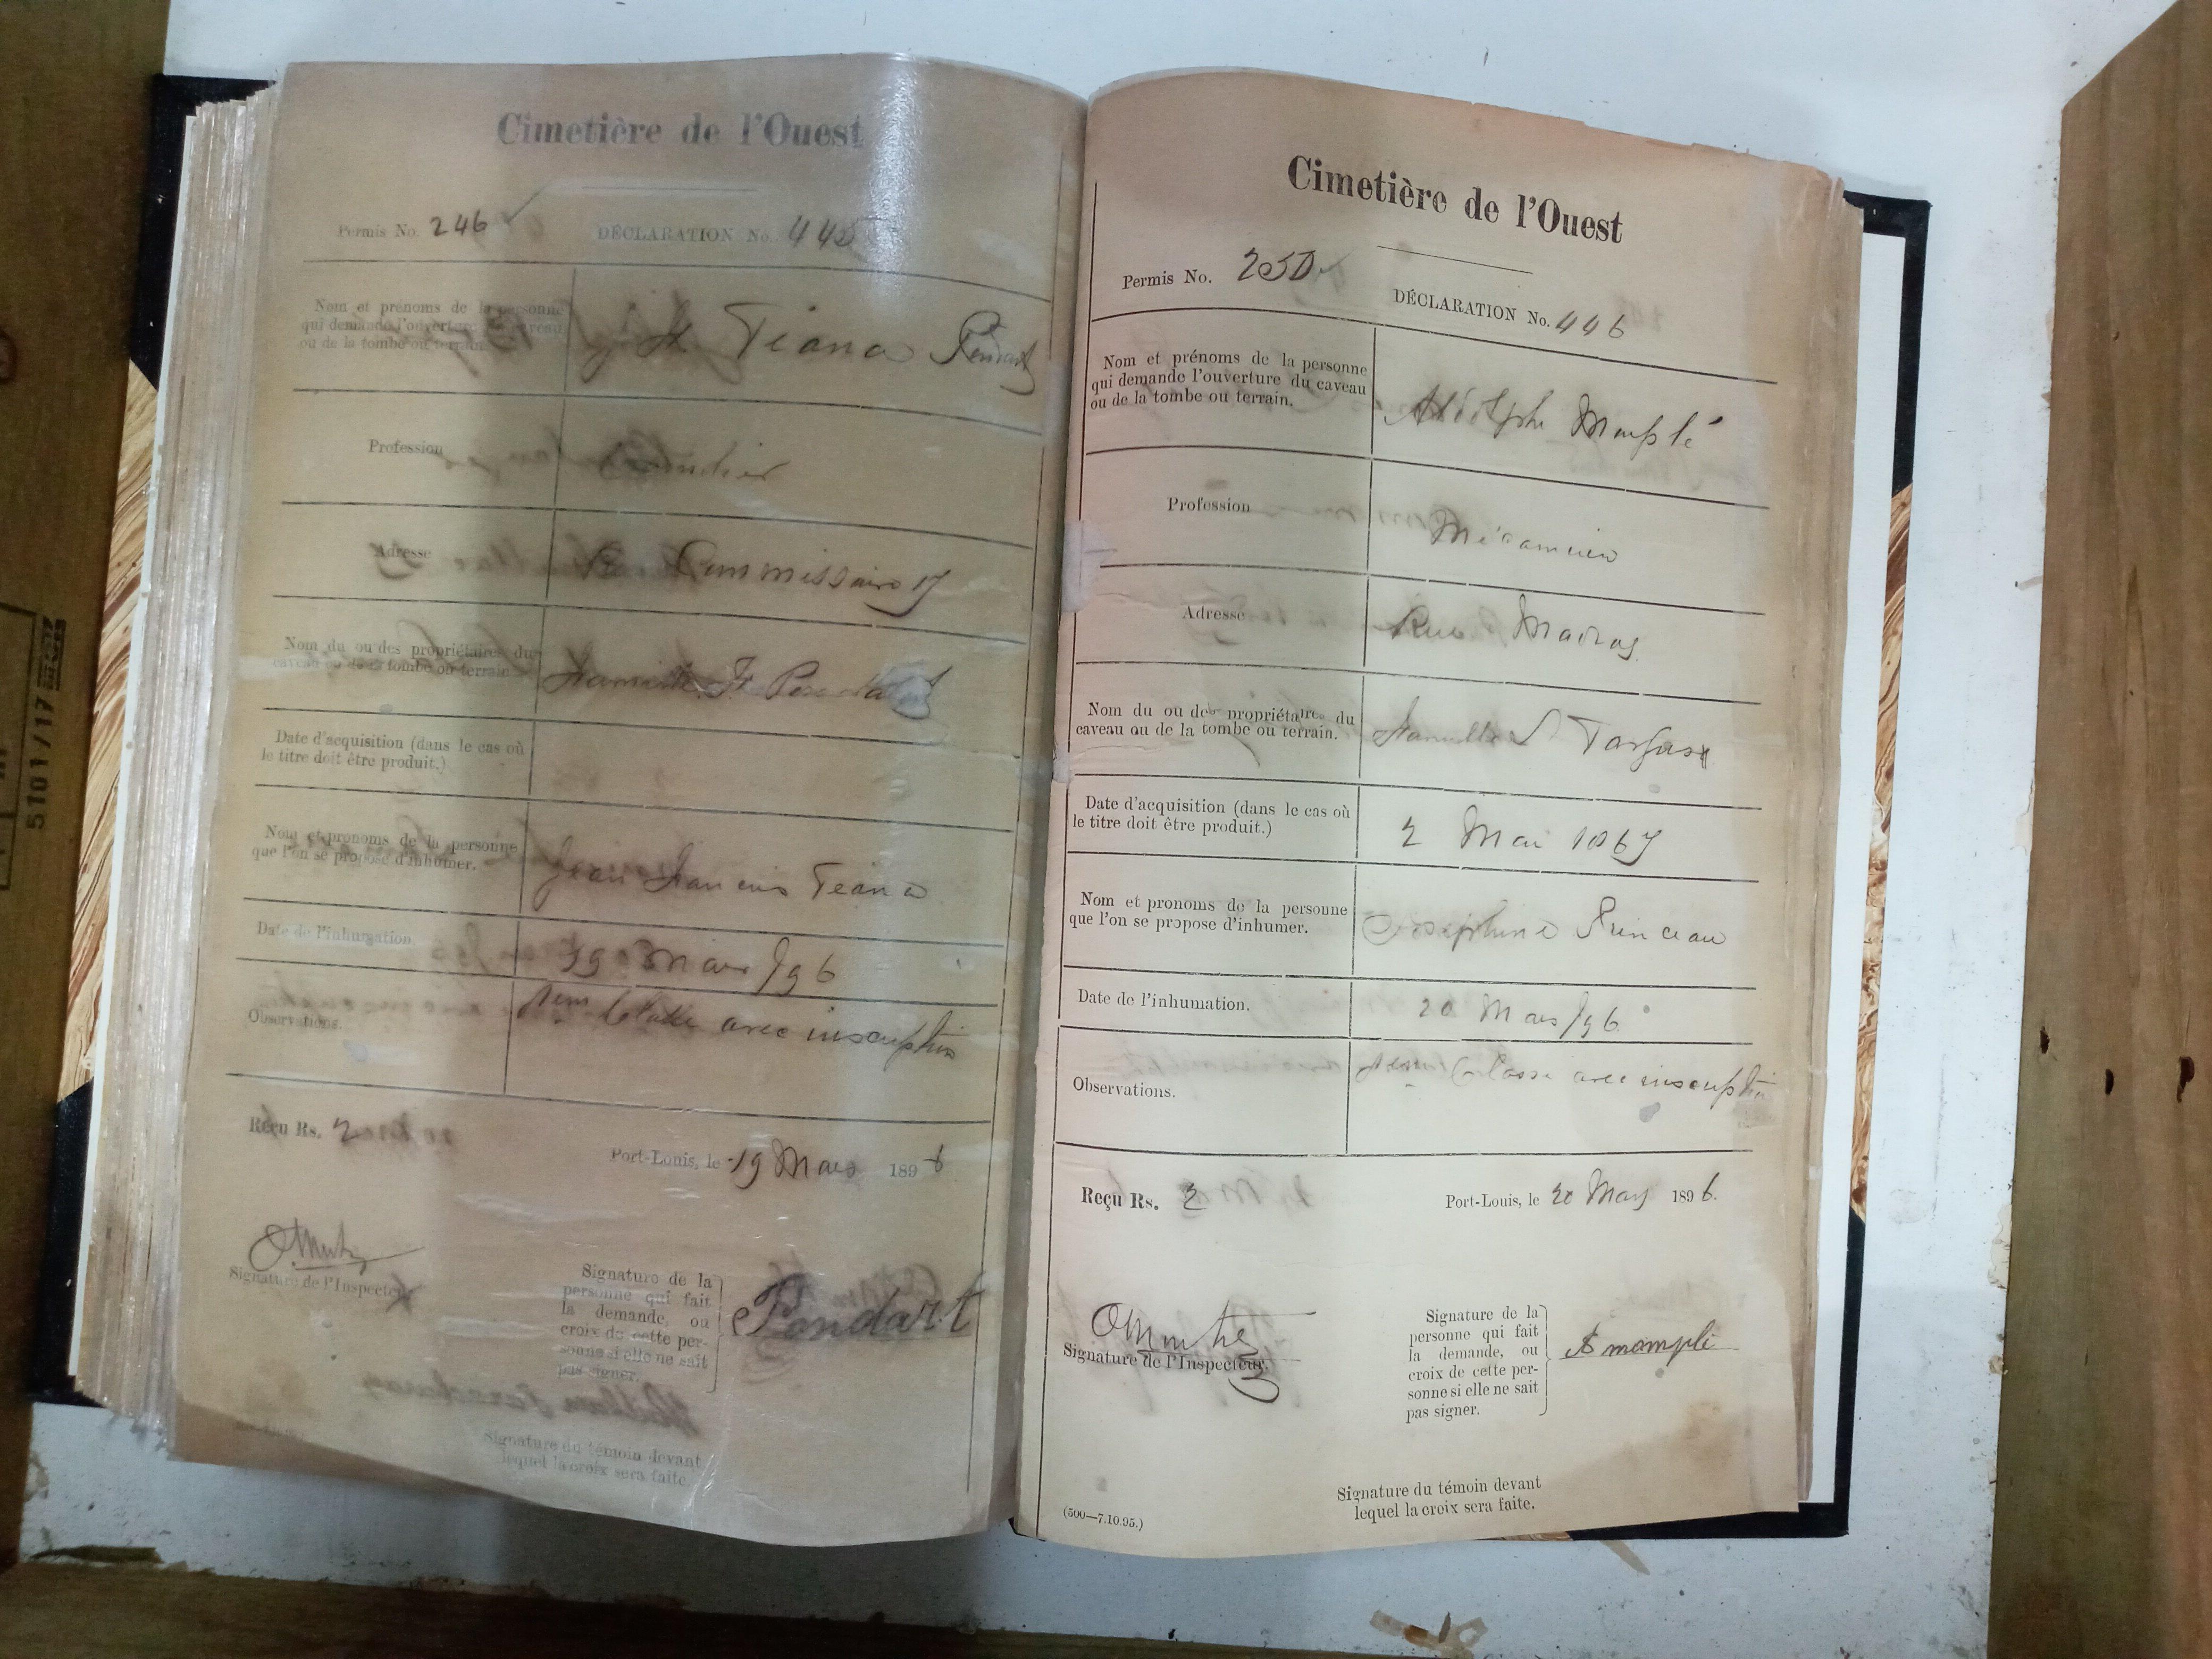 Cimetière de l'Ouest
Permis No. 246
DÉCLARATION No. 445
Nom et prénoms de la personne
qui demande l'ouverture du caveau
ou de la tombe ou terrain.
Tiana
Profession
Adresse
Commissaire 17
Nom du ou des propriétaires du
caveau ou de la tombe ou terrain
Date d'acquisition (dans le cas où
le titre doit être produit.)
Nom et pronoms de la personne
que l'on se propose d'inhumer.
Jean Francis Teana
Date de l'inhumation.
19 Mars /96
Observations.
1ere Classe avec inscription
Reçu Rs. 2
Port-Louis, le 19 Mars 1896
Signature de l'Inspecteur
Signature de la
personne qui fait
la demande, ou
croix de cette per-
sonne si elle ne sait
pas signer.
Pendart
Signature du témoin devant
lequel la croix sera faite.
Cimetière de l'Ouest
Permis No. 250
DÉCLARATION No. 446
Nom et prénoms de la personne
qui demande l'ouverture du caveau
ou de la tombe ou terrain.
Adolphe Momplé
Profession
Mécanicien
Adresse
Rue Madras
Nom du ou des propriétaires du
caveau ou de la tombe ou terrain.
Date d'acquisition (dans le cas où
le titre doit être produit.)
2 Mai 1867
Nom et pronoms de la personne
que l'on se propose d'inhumer.
Josephine Princeau
Date de l'inhumation.
20 Mars /96
Observations.
1ere Classe avec inscription
Reçu Rs. 2
Port-Louis, le 20 Mars 1896.
Signature de l'Inspecteur.
Signature de la
personne qui fait
la demande, ou
croix de cette per-
sonne si elle ne sait
pas signer.
A momplé
Signature du témoin devant
lequel la croix sera faite.
(500—7.10.95.)
5101/17